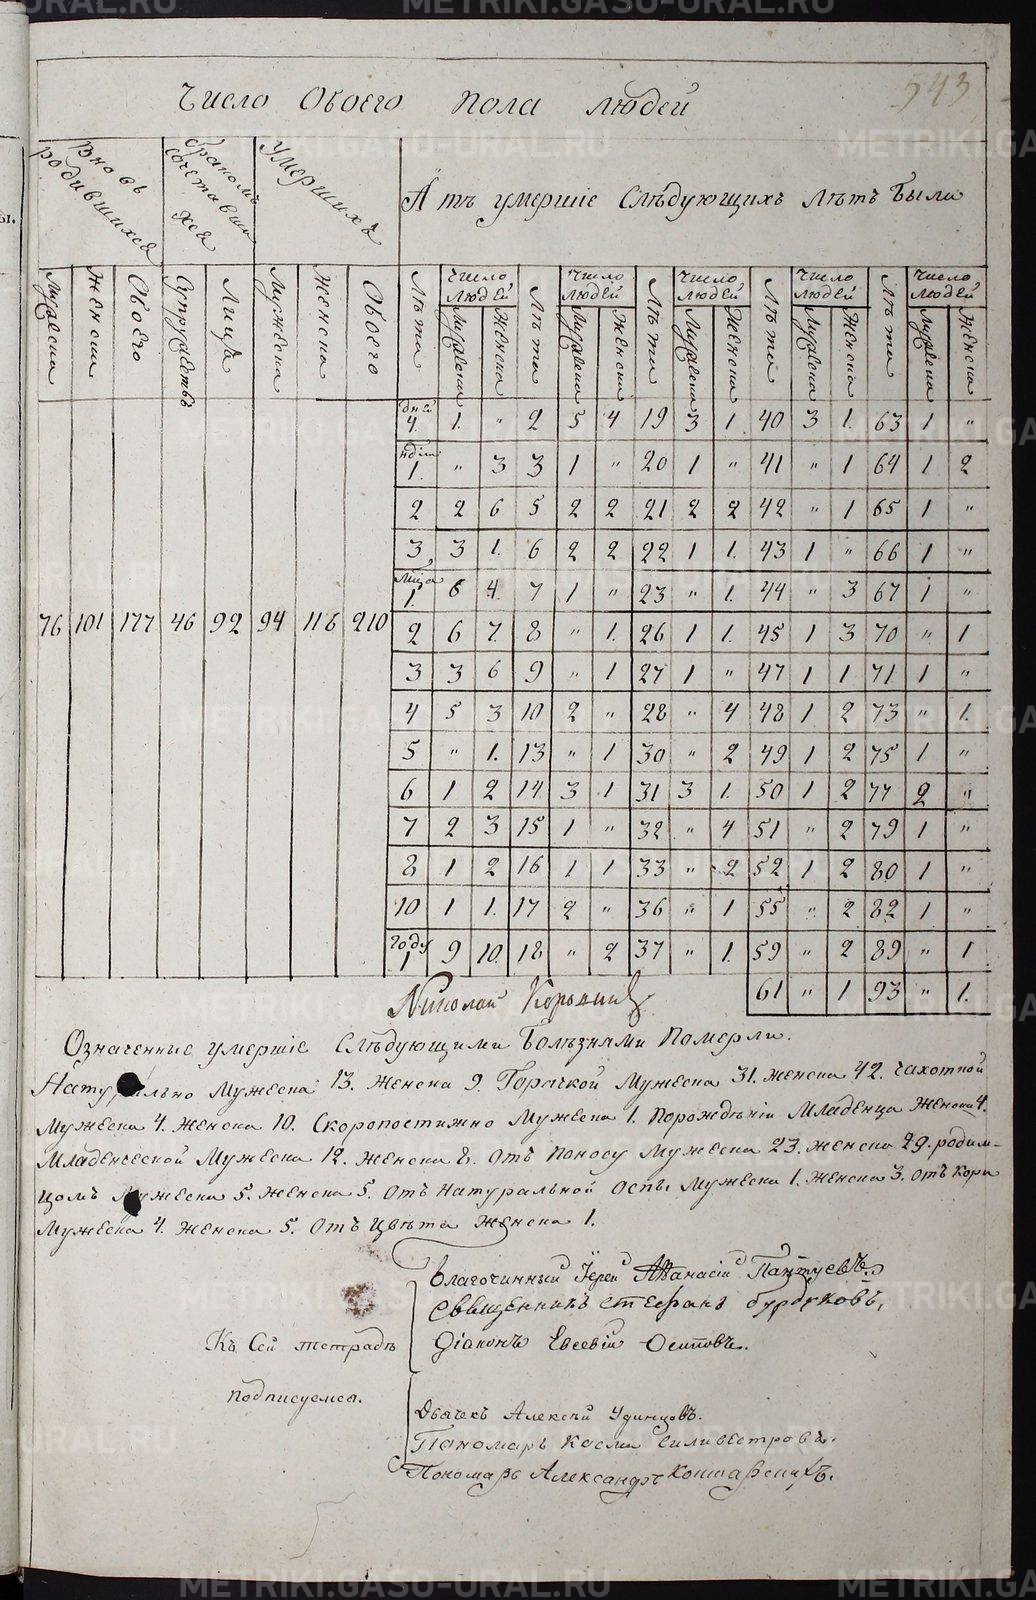 543
Число Обоего пола людей
Вновь родившихся
браком сочетавшихся
Умершихъ
А тѣ умершіе Слѣдующихъ Лѣтъ были
Мужеска Женска Обоего Супружествъ Лицъ Мужеска Женска Обоего Лѣта Число людей Лѣта Число людей Лѣта Число людей Лѣта Число людей Лѣта Число людей
Мужеска Женска Мужеска Женска Мужеска Женска Мужеска Женска Мужеска Женска
дня 4. 1. " 2 5 4 19 3 1. 40 3 1. 63 1 "
1. " 3 3 1 " 20 1 " 41 " 1 64 1 2
2 2 6 5 2 2 21 2 2 42 " 1 65 1 "
3 3 1. 6 2 2 22 1 1. 43 1 " 66 1 "
1. 6 4. 7 1 " 23 " 1. 44 " 3 67 1 "
76 101 177 46 92 94 116 210 2 6 7. 8 " 1. 26 1 1. 45 1 3 70 " 1
3 3 6 9 " 1 27 1 " 47 1 1 71 1 "
4 5 3 10 2 " 28 " 4 48 1 2 73 " 1.
5 " 1. 13 " 1 30 " 2 49 1 2 75 1 "
6 1 2 14. 3 1 31 3 1. 50 1 2 77 2 "
7 2 3 15 1 " 32 " 4 51 " 2 79 1 "
8 1 2 16 1 1 33 " 2 52 1 2 80 1 "
10 1 1. 17 2 " 36 " 1 55 " 2 82 1 "
году 1 9 10. 18 " 2 37 " 1. 59 " 2 89 " 1
61 " 1 93 " 1.
Николай
Означенные умершіе Слѣдующими Болѣзнями Померли.
Натурально Мужеска 13. Женска 9. Горячкой Мужеска 31. Женска 42. Чахоткой
Мужеска 4. Женска 10. Скоропостижно Мужеска 1. Порожденіи Младенца Женска 4.
Младенческой Мужеска 12. Женска 8. Отъ Поносу Мужеска 23. Женска 29. родим-
цомъ Мужеска 5. Женска 5. Отъ Натуральной Оспы Мужеска 1. Женска 3. отъ Кори
Мужеска 4. Женска 5. Отъ Цвѣта Женска 1.
Благочинный Іерей Афанасій Пантуевъ.
Священникъ Стефанъ Бурдуковъ,
Къ Сей тетрадѣ
Діаконъ Евсевій Осиповъ.
подписуемся.
Дьячекъ Алексѣй Удинцовъ.
Пономарь Косма Силивестровъ.
Пономарь Александръ
METRIKI.GASO-URAL.RU